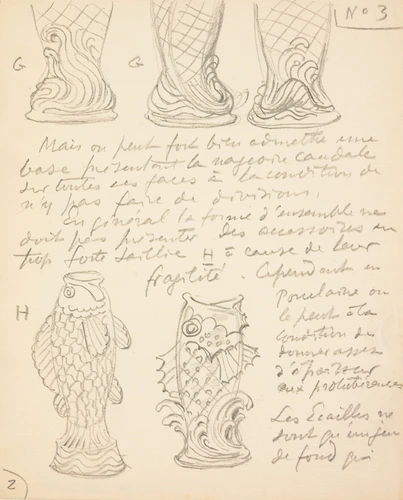 No 3
G G
Mais on peut fort bien admettre une
base présentant la nageoire caudale
sur toutes ses faces à la condition de
n'y pas faire de divisions.
En général la forme d'ensemble ne
doit pas présenter des accessoires en
trop forte saillie H à cause de leur
fragilité. Cependant en
Porcelaine on
le peut à la
condition de
donner assez
d'épaisseur
aux protubérences
H
Les Ecailles ne
sont qu'un jeu
de fond qui
2